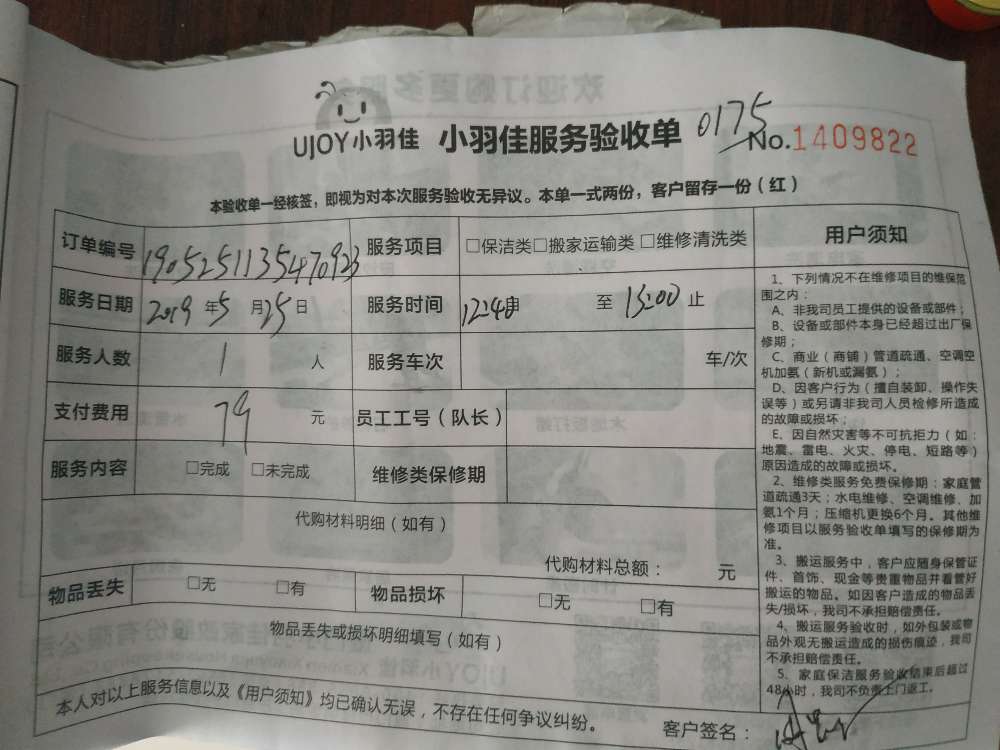 UJOY小羽佳 小羽佳服务验收单 0175 No.1409822
本验收单一经核签，即视为对本次服务验收无异议。本单一式两份，客户留存一份（红）
订单编号 190525113547 0923 服务项目 □保洁类□搬家运输类□维修清洗类
服务日期 2019年5月25日 服务时间 12:40 至 15:00 止
服务人数 1 人 服务车次 车/次
支付费用 79 元 员工工号（队长）
服务内容 □完成 □未完成 维修类保修期
代购材料明细（如有）
代购材料总额： 元
物品丢失 □无 □有 物品损坏 □无 □有
物品丢失或损坏明细填写（如有）
本人对以上服务信息以及《用户须知》均已确认无误，不存在任何争议纠纷。
客户签名：
用户须知
1、下列情况不在维修项目的维保范
围之内：
A、非我司员工提供的设备或部件；
B、设备或部件本身已经超过出厂保
修期；
C、商业（商铺）管道疏通、空调空
机加氨（新机或漏氨）；
D、因客户行为（擅自装卸、操作失
误等）或另请非我司人员检修所造成
的故障或损坏；
E、因自然灾害等不可抗拒力（如：
地震、雷电、火灾、停电、短路等）
原因造成的故障或损坏。
2、维修类服务免费保修期：家庭管
道疏通3天；水电维修、空调维修、加
氨1个月；压缩机更换6个月。其他维
修项目以服务验收单填写的保修期为
准。
3、搬运服务中，客户应随身保管证
件、首饰、现金等贵重物品并看管好
搬运的物品。如因客户造成的物品丢
失/损坏，我司不承担赔偿责任。
4、搬运服务验收时，如外包装或物
品外观无搬运造成的损伤痕迹，我司
不承担赔偿责任。
5、家庭保洁服务验收结束后超过
48小时，我司不负责上门返工。